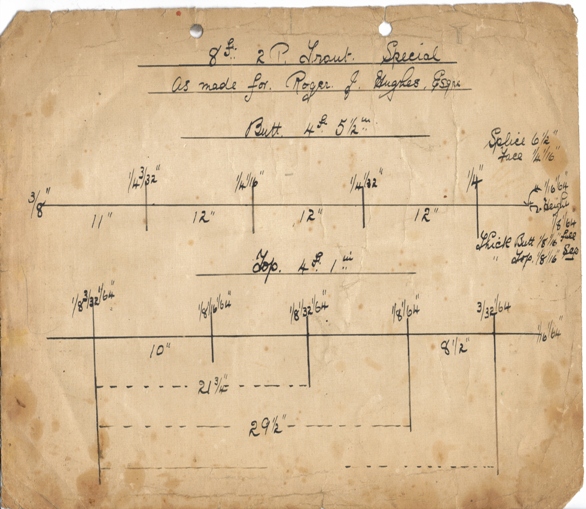 8 ft: 2 P. Trout. Special
As made for. Roger. J. Hughes, Esqre
Butt 4 ft 5 1/2 in
Splice 6 1/2"
Face 1/4 1/16"
3/8" 1/4 3/32" 1/4 1/16" 1/4 1/32" 1/4"
11" 12" 12" 12"
1/16 1/64
Height
1/8 1/64
Thick Butt 1/8 1/16
" Top. 1/8 1/16"
Top. 4 ft 1 in
1/8 3/32 1/64" 1/8 1/16 1/64" 1/8 1/32 1/64" 1/8 1/64" 3/32 1/64 1/16 1/64"
10" 8 1/2"
21 3/4"
29 1/2"